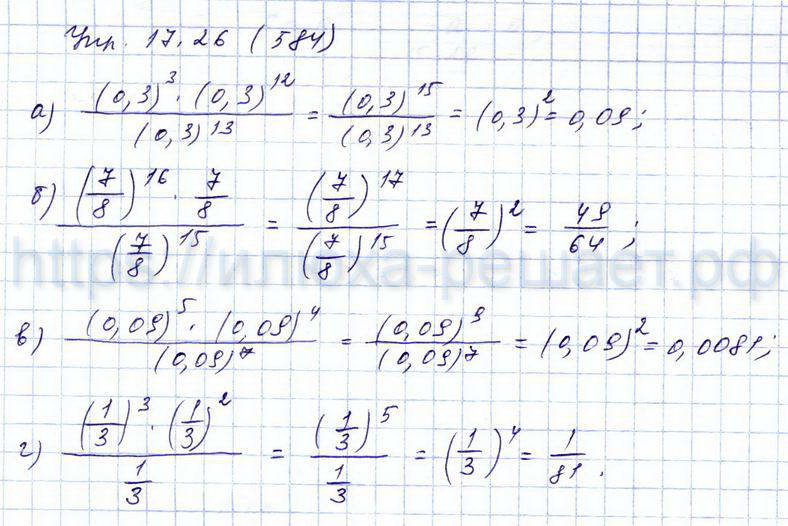 Упр. 17.26 (584)
а) ((0,3)^3 · (0,3)^12)/(0,3)^13 = (0,3)^15/(0,3)^13 = (0,3)^2 = 0,09;
б) ((7/8)^16 · 7/8)/(7/8)^15 = (7/8)^17/(7/8)^15 = (7/8)^2 = 49/64;
https://илюха-решает.рф
в) ((0,09)^5 · (0,09)^4)/(0,09)^7 = (0,09)^9/(0,09)^7 = (0,09)^2 = 0,0081;
г) ((1/3)^3 · (1/3)^2)/(1/3) = (1/3)^5/(1/3) = (1/3)^4 = 1/81.